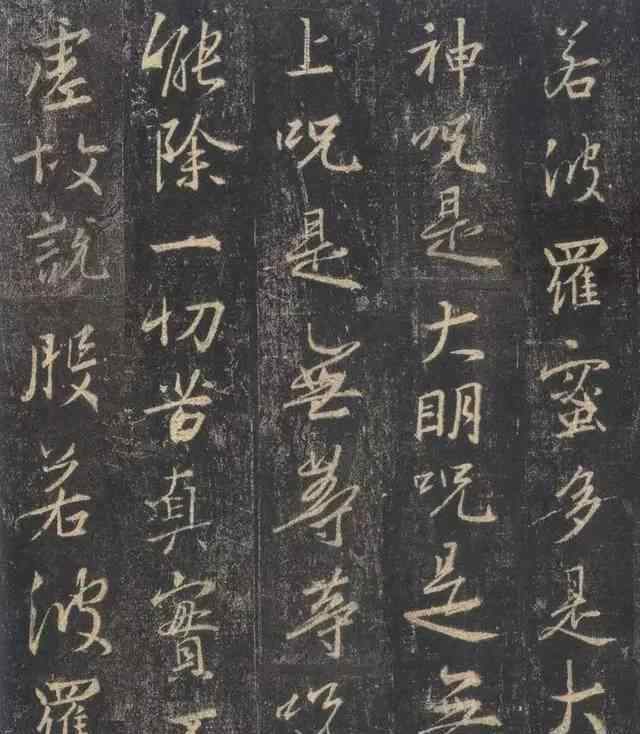 若波羅蜜多是大
神呪是大明呪是无
上呪是無等等呪
能除一切苦真實不
虛故說般若波羅